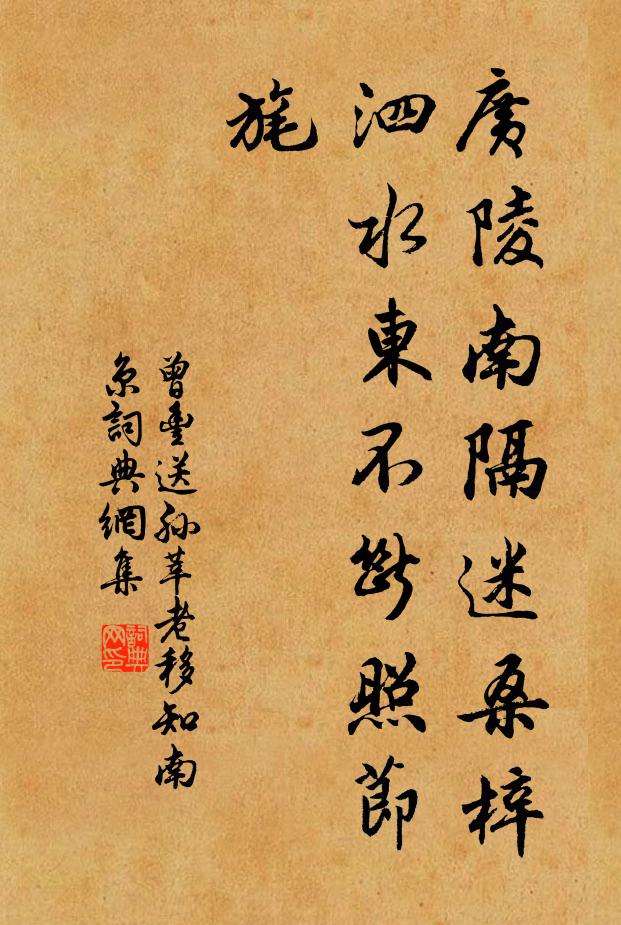 廣陵南隔迷桑梓
泗水東不斷照節
旄
曾豐送孫莘老移知南
京詞典網集
詞典
网印